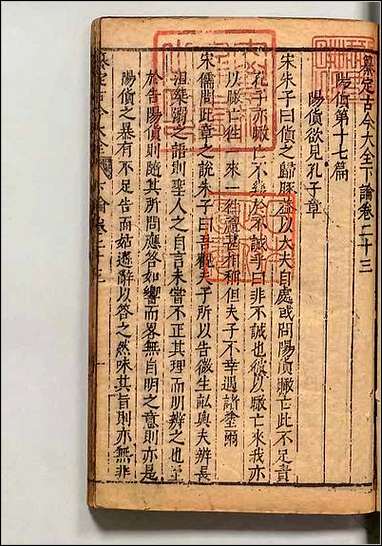 纂定古今大全下論卷二十三
陽貨第十七篇
陽貨欲見孔子章
宋朱子曰貨之歸豚蓋以大夫自處或問陽貨瞰亡此不足責
孔子亦瞰亡不幾於不誠乎曰非不誠也彼以瞰亡來我亦
以瞰亡往一來一往禮甚相稱但夫子不幸遇諸塗爾
宋儒問此章之說朱子曰吾觀夫子所以告微生畝與夫辨長
沮桀溺之語則聖人之自言未嘗不正其理而明辨之也至
於告陽貨則隨其所問應答如響而畧無自明之意則亦
陽貨之暴有不足告而姑遜辭以答之然味其旨則亦無非
纂定古今大全